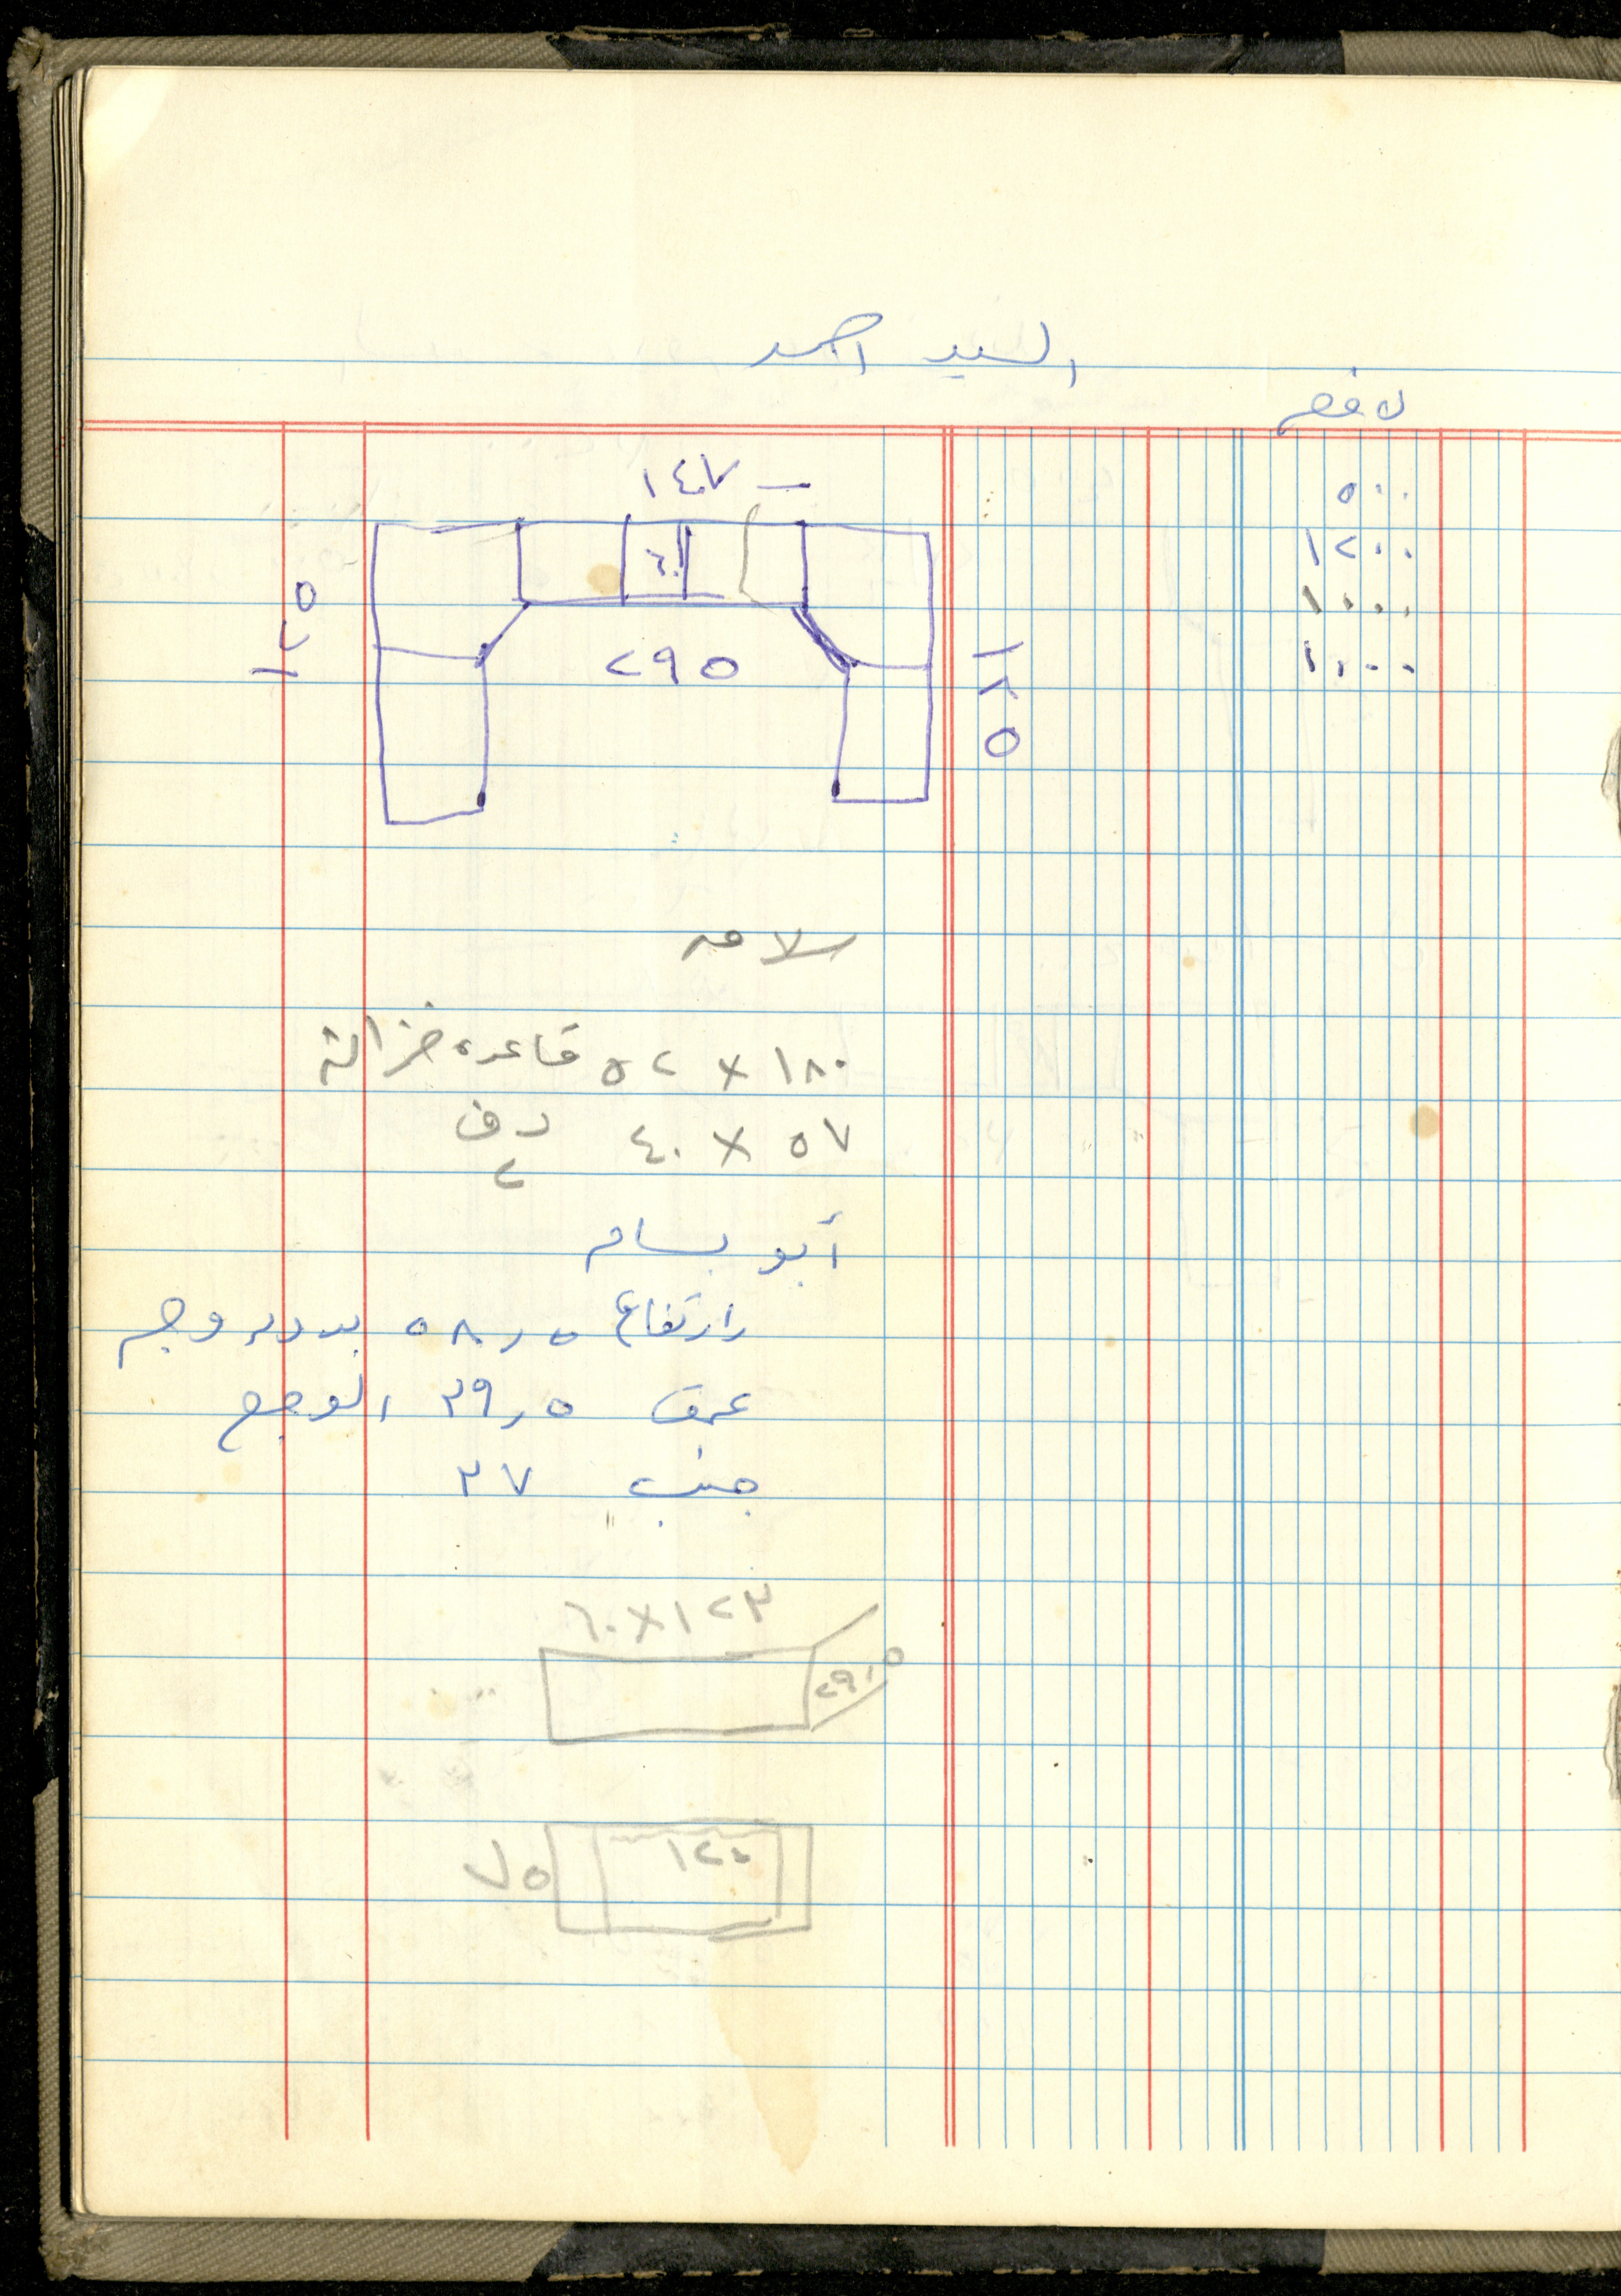 السيد احمد
٥٠٠
١٢٠٠
١٠٠٠
١٠٠٠
١٤٧ -
٦٠
٢٩٥
١٧٥
١٨٥
سلامه
١٨٠ × ٥٢ قاعده خزانة
٥٧ × ٤٠ دف
٢
أبو بسام
ارتفاع ٥٨,٥ بدون وجه
عمق ٣٩,٥ الوجه
جنب ٣٧
١٢٣ × ٦٠
٢٩,٥
١٢٠
٧٥